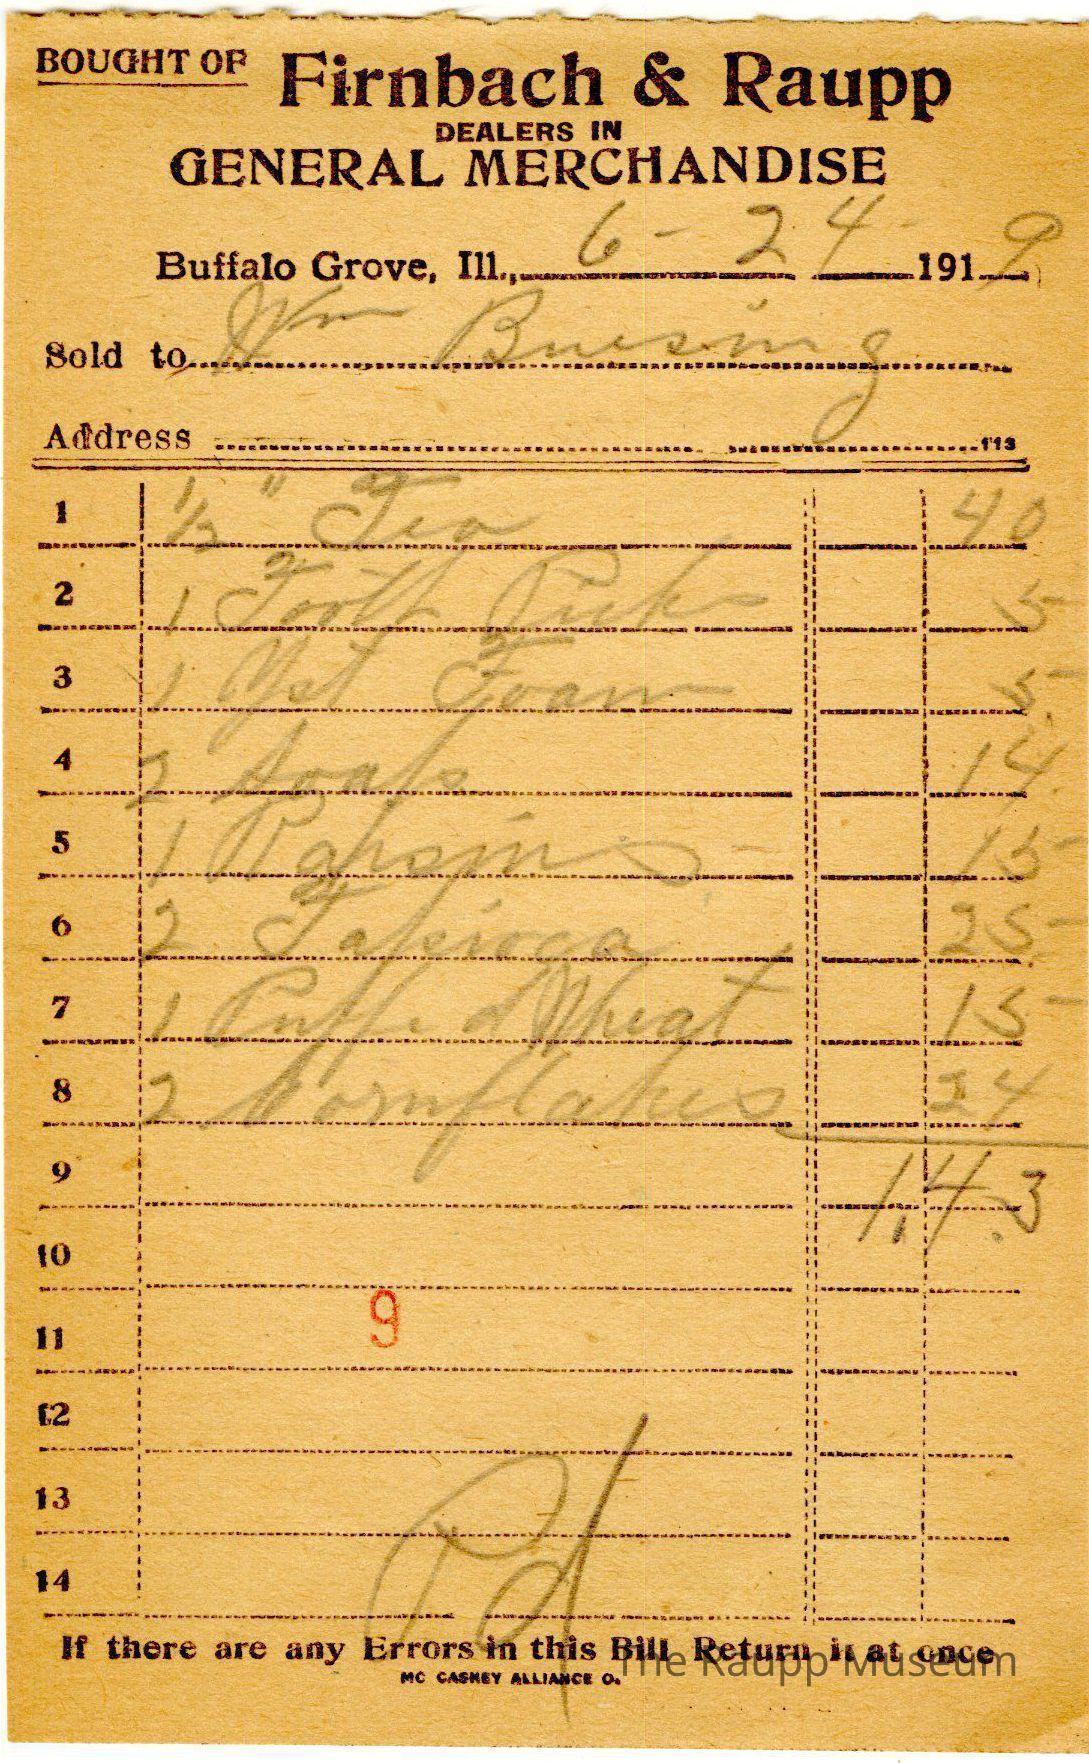 BOUGHT OF Firnbach & Raupp
DEALERS IN
GENERAL MERCHANDISE
Buffalo Grove, Ill., 6-24-1919
Sold to Wm Buesing
Address 113
1 1/2 " Tea 40
2 1 Tooth Picks 5
3 1 Yst Foam 5
4 2 Soaps 14
5 1 Raisins 15
6 2 Tapioca 25
7 1 Puffed Wheat 15
8 2 Cornflakes 24
9 1.43
10
11 9
12
13
14
Pd
If there are any Errors in this Bill Return it at once
MC CASKEY ALLIANCE O.
The Raupp Museum